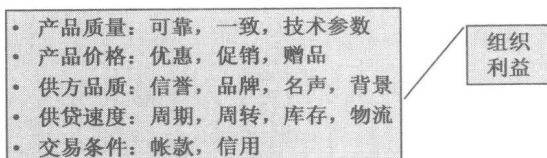 • 产品质量：可靠，一致，技术参数
• 产品价格：优惠，促销，赠品
• 供方品质：信誉，品牌，名声，背景
• 供贷速度：周期，周转，库存，物流
• 交易条件：帐款，信用
组织
利益